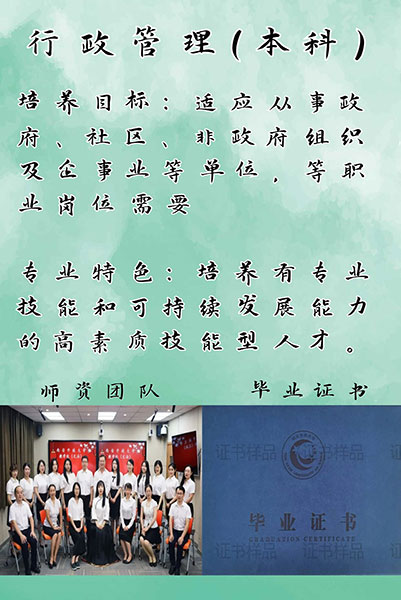 行政管理(本科)
培养目标：适应从事政
府、社区、非政府组织
及企事业等单位，等职
业岗位需要
专业特色：培养有专业
技能和可持续发展能力
的高素质技能型人才。
师资团队
毕业证书
证书样品
证书样品
毕业证书
GRADUATION CERTIFICATE
证书样品
证书样品